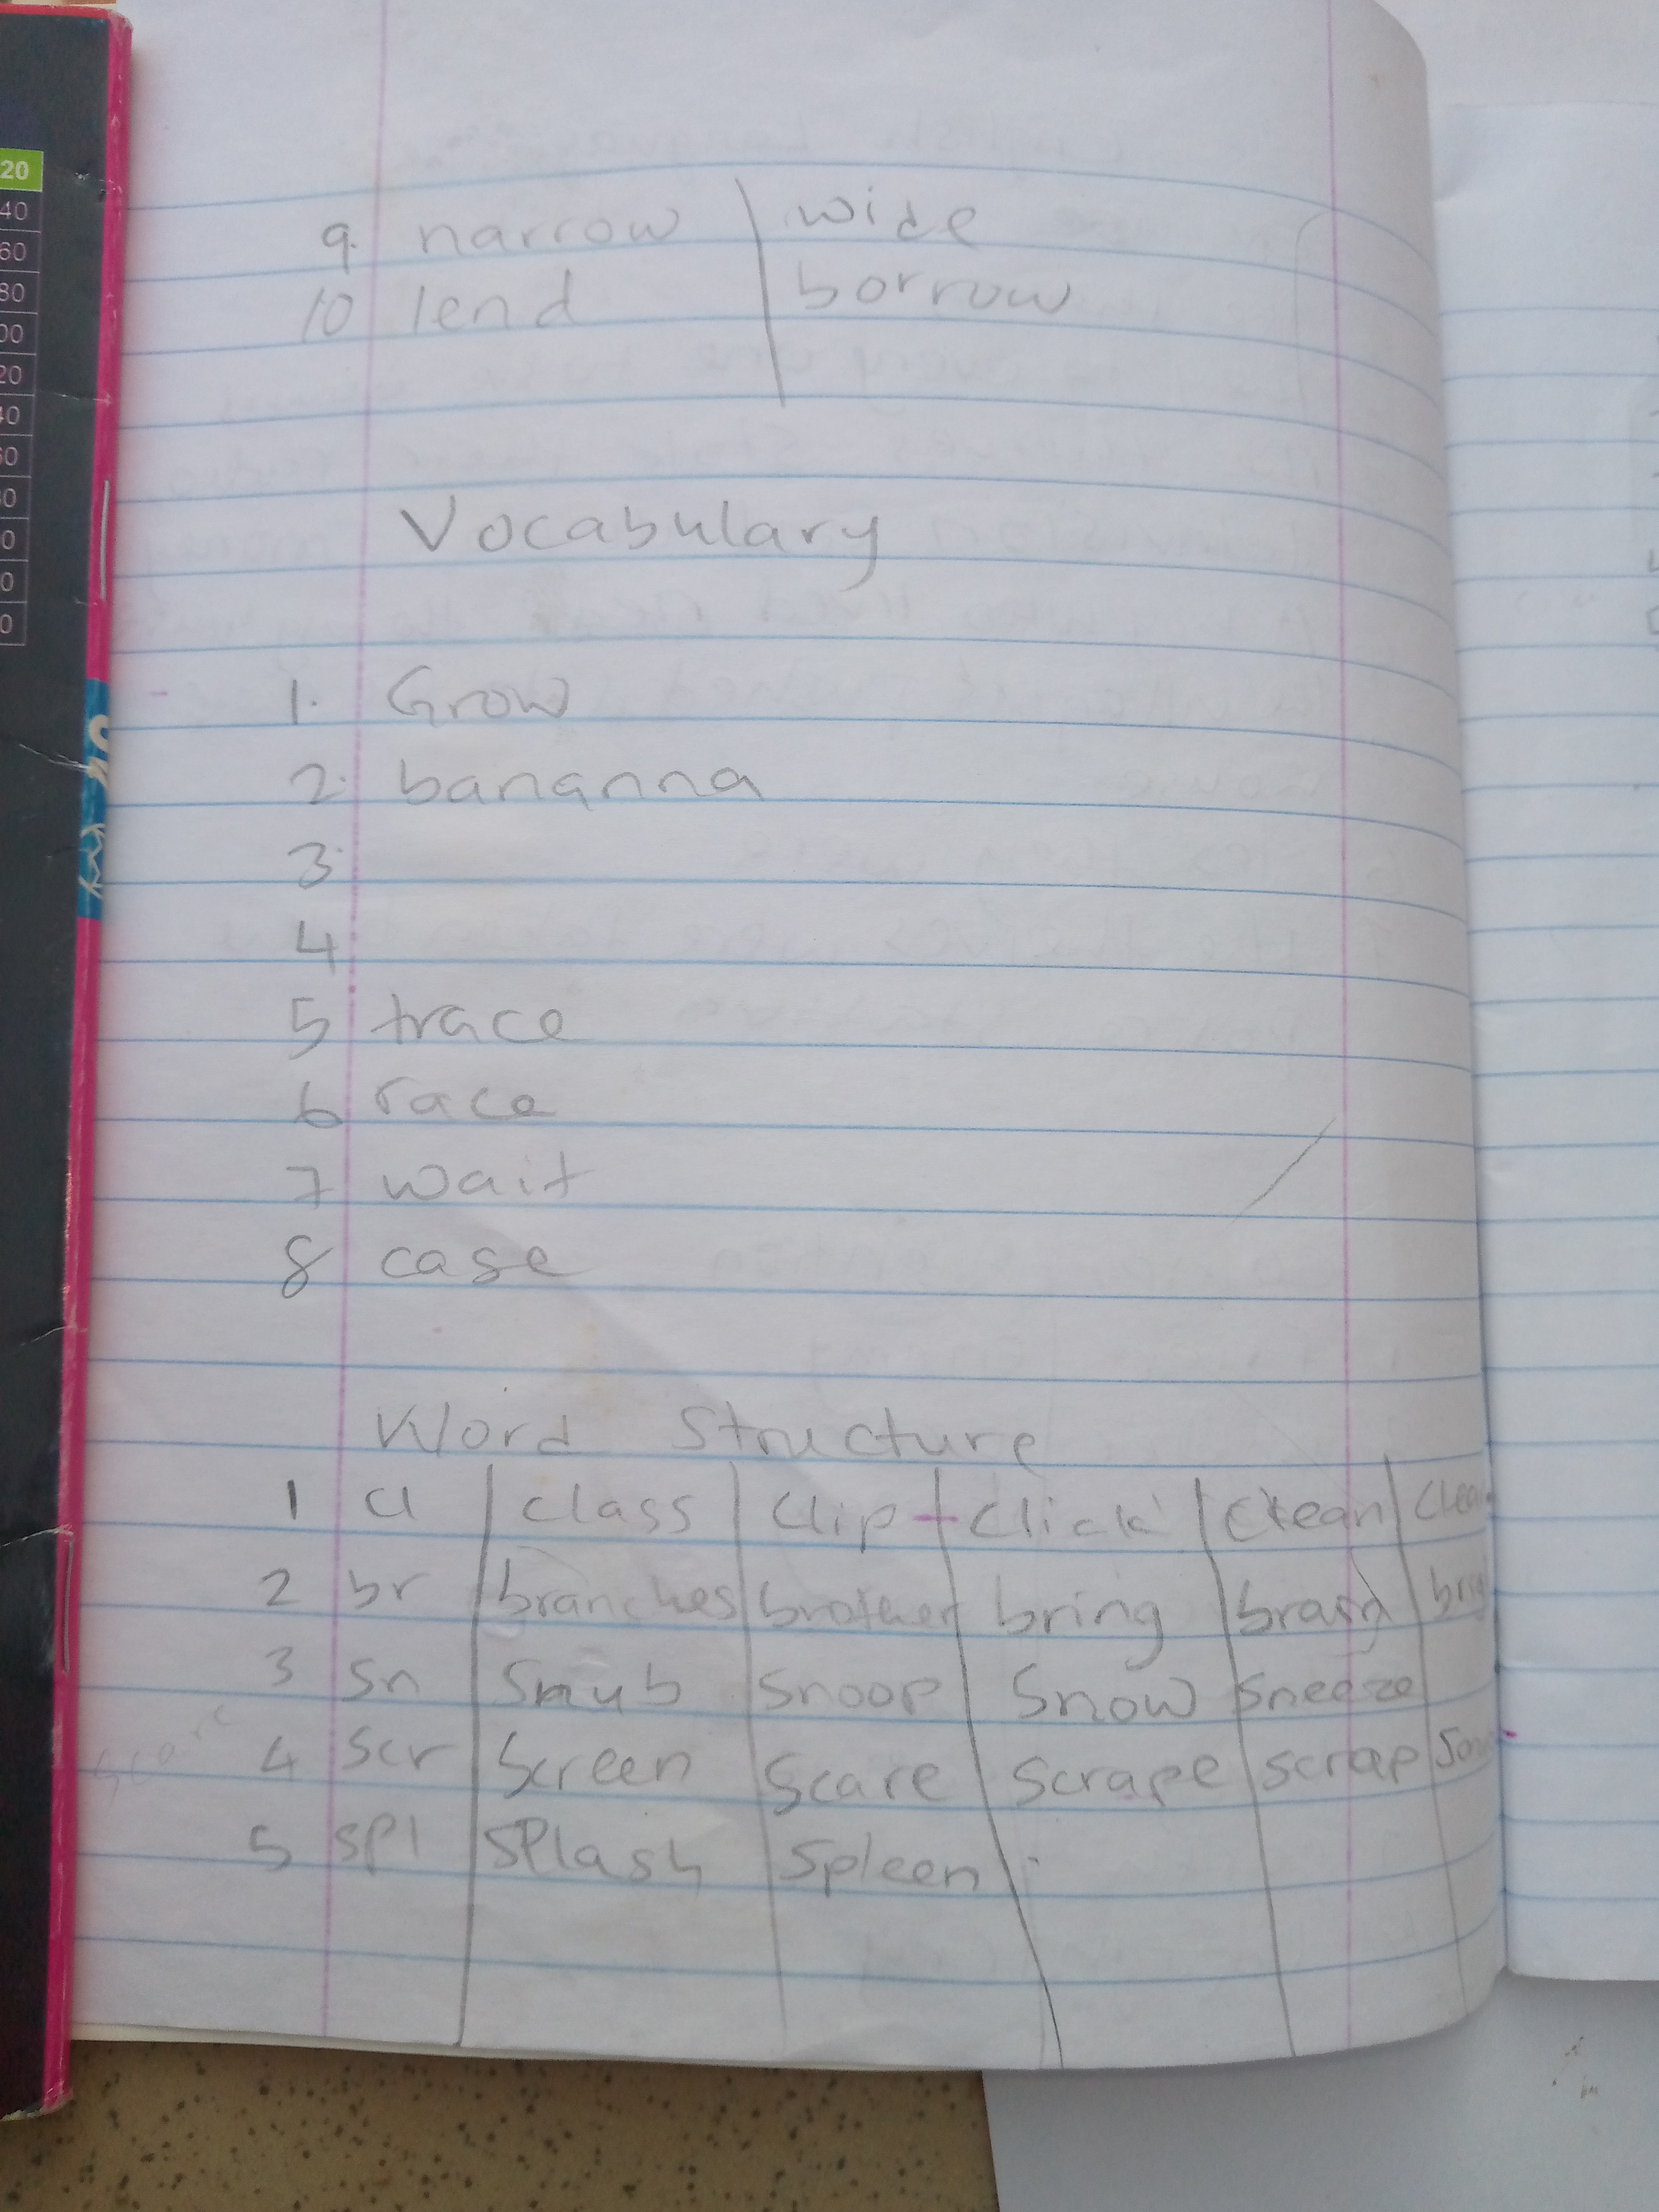 9. narrow | wide
10 lend | borrow
Vocabulary
1. Grow
2. bananna
3.
4
5 trace
6 race
7 wait
8 case
Word Structure
1 cl | class | clip | click | clean
2 br | branches | brother | bring
3 Sn | Snub | Snoop | Snow | Sneeze
4 Scr | Screen | Scare | Scrape | scrap
5 SPl | SPlash | Spleen
20
40
60
80
00
20
40
60
80
0
0
0